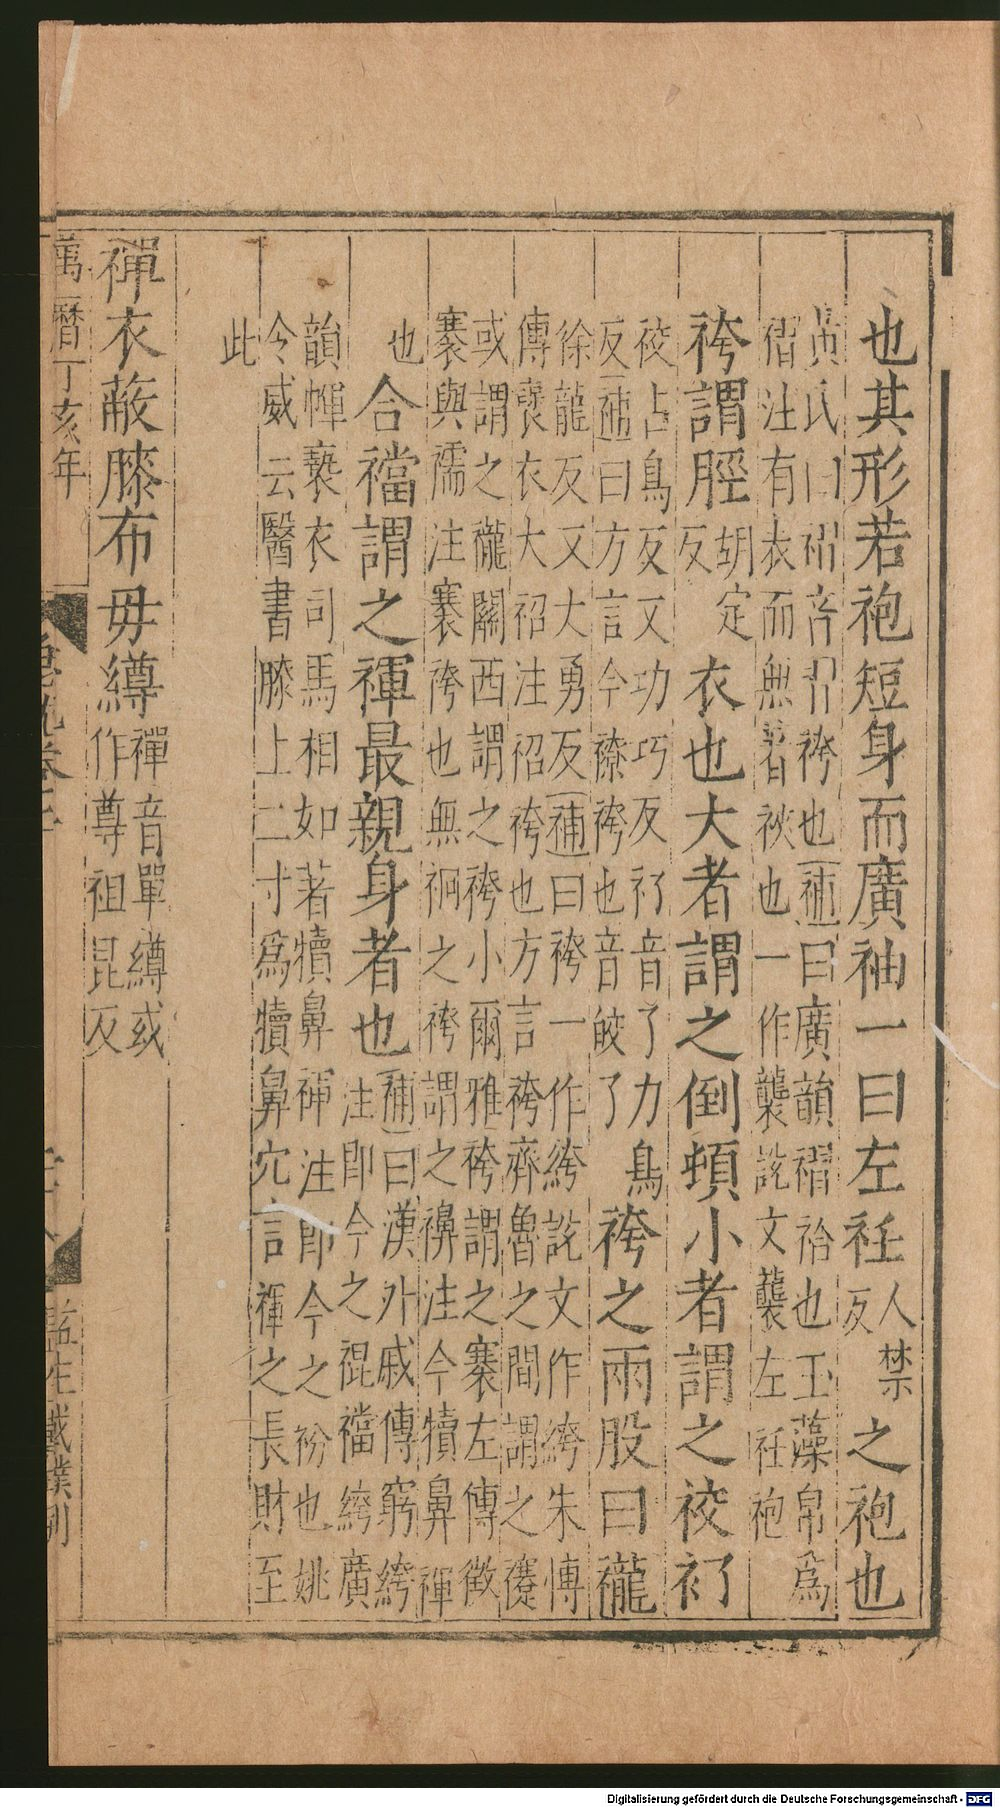 也其形若袍短身而廣袖一曰左衽人禁反之袍也
黃氏曰褶音習袴也補曰廣韻褶袷也玉藻帛為
褶注有衣而無著袂也一作襲說文襲左衽袍
袴謂脛胡定反衣也大者謂之倒頓小者謂之䘨衦
䘨占鳥反又功巧反衦音了力鳥
反補曰方言今襐袴也音皎了
袴之兩股曰襱
徐龍反又大勇反補曰袴一作絝說文作絝朱博
傳襃衣大袑注袑袴也方言袴齊魯之間謂之褰
或謂之襱關西謂之袴小爾雅袴謂之褰左傳徵
褰與襦注褰袴也無裥之袴謂之襣注今犢鼻褌
也
合襠謂之褌最親身者也
補曰漢外戚傳窮絝
注即今之裩襠絝廣
韻㡓褻衣司馬相如著犢鼻褌注即今之衳也姚
令威云醫書膝上二寸為犢鼻穴言褌之長財至
此
襌衣蔽膝布毋繜
襌音單繜或
作尊祖昆反
萬曆丁亥年
急就卷二
監生戴
Digitalisierung gefördert durch die Deutsche Forschungsgemeinschaft - DFG